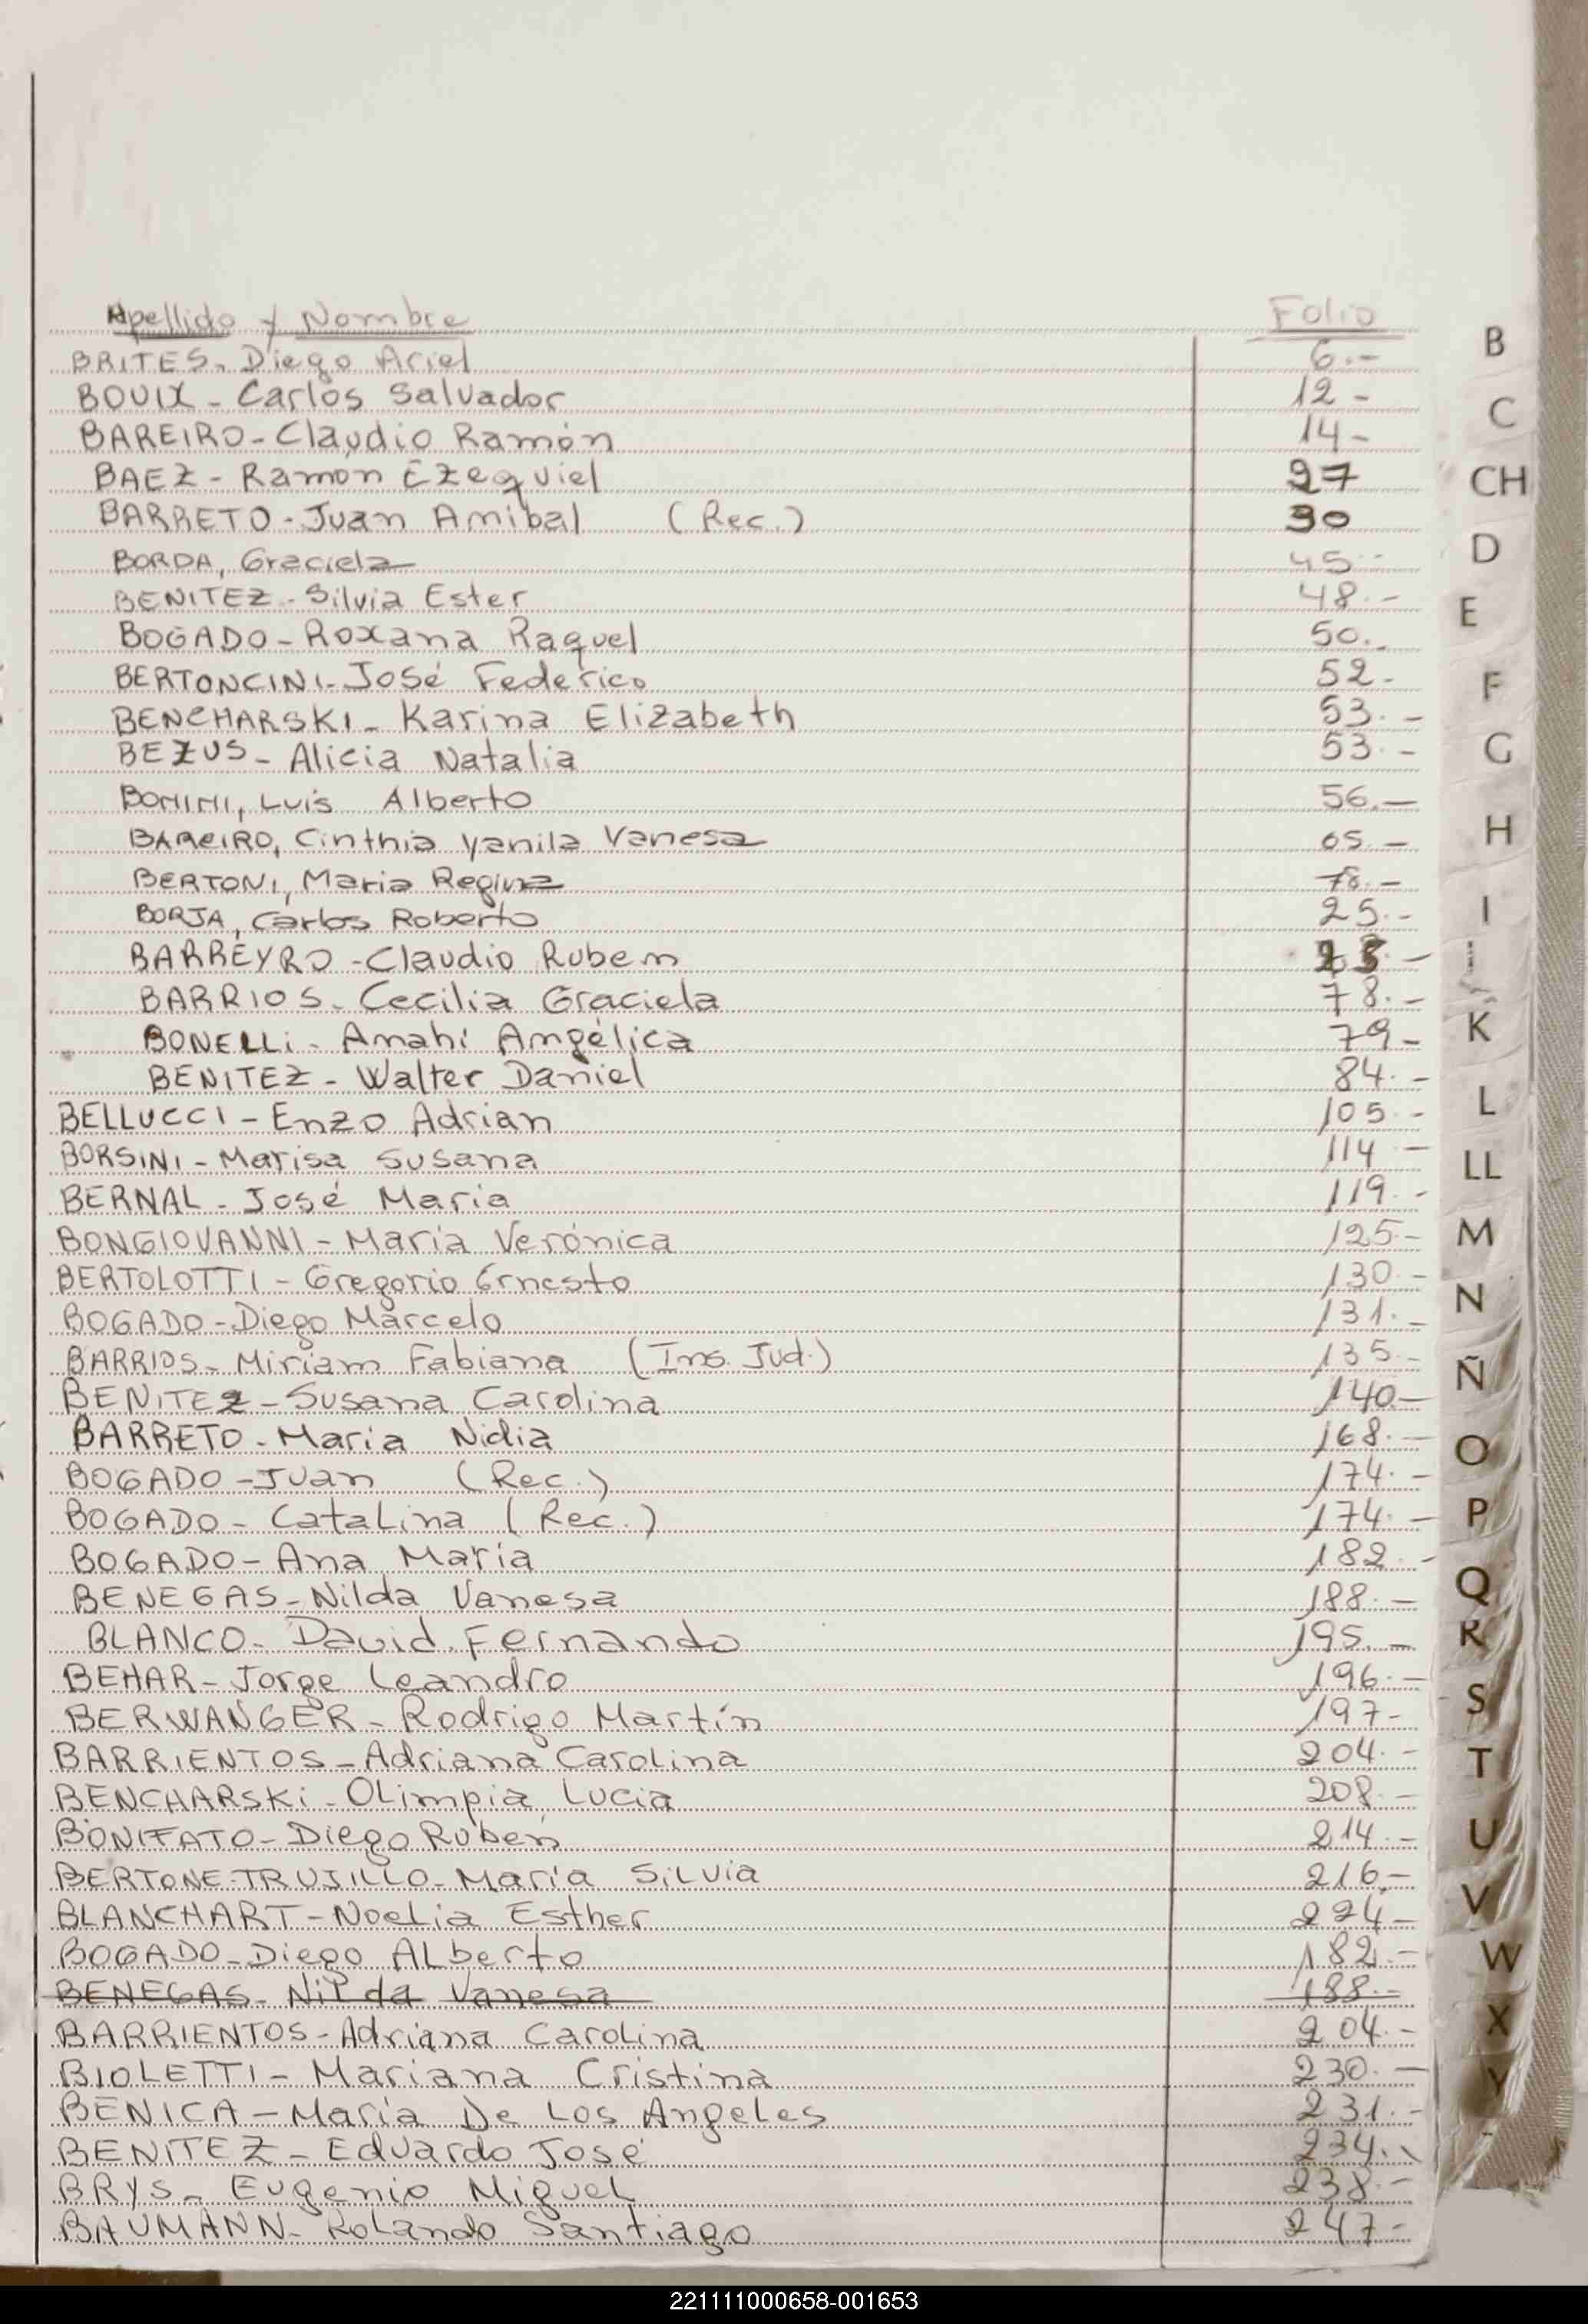 Apellido y Nombre Folio
BRITES. Diego Ariel 6.-
BOUIX - Carlos Salvador 12 -
BAREIRO - Claudio Ramón 14 -
BAEZ - Ramon Ezequiel 27
BARRETO - Juan Anibal (Rec.) 30
BORDA, Graciela 45.-
BENITEZ - Silvia Ester 48.-
BOGADO - Roxana Raquel 50.-
BERTONCINI - José Federico 52 -
BENCHARSKI - Karina Elizabeth 53.-
BEZUS - Alicia Natalia 53.-
BONINI, Luis Alberto 56.-
BAREIRO, Cinthia Yanila Vanesa 65.-
BERTONI, Maria Regina
BORJA, Carlos Roberto 25.-
BARREYRO - Claudio Ruben
BARRIOS - Cecilia Graciela 78.-
BONELLi - Anahí Angélica 79 -
BENITEZ - Walter Daniel 84.-
BELLUCCI - Enzo Adrian 105 -
BORSINI - Marisa Susana 114 -
BERNAL - José Maria 119.-
BONGIOVANNI - María Verónica 125.-
BERTOLOTTI - Gregorio Ernesto 130.-
BOGADO - Diego Marcelo 131.-
BARRIOS - Miriam Fabiana (Ins. Jud.) 135.-
BENITEZ - Susana Carolina 140.-
BARRETO - María Nidia 168.-
BOGADO - Juan (Rec.) 174.-
BOGADO - CataLina (Rec.) 174.-
BOGADO - Ana María 182.-
BENEGAS - Nilda Vanesa 188.-
BLANCO - David Fernando 195.-
BEHAR - Jorge Leandro 196.-
BERWANGER - Rodrigo Martín 197 -
BARRIENTOS - Adriana Carolina 204.-
BENCHARSKi - OLimpia Lucia 208.-
BONIFATO - Diego Rubén 214.-
BERTONE TRUJILLO - María SiLvia 216.-
BLANCHART - NoeLia Esther 224 -
BOGADO - Diego ALberto 182.-
BENEGAS - NiLda Vanesa 188.-
BARRIENTOS - Adriana CaroLina 204.-
BIOLETTI - Mariana Cristina 230.-
BENICA - María De Los Angeles 231.-
BENITEZ - Eduardo José 234.-
BRYS - Eugenio MigueL 238.-
BAUMANN - RoLando Santiago 247 -
B
C
CH
D
E
F
G
H
I
K
L
LL
M
N
Ñ
O
P
Q
R
S
T
U
V
W
X
Y
221111000658-001653